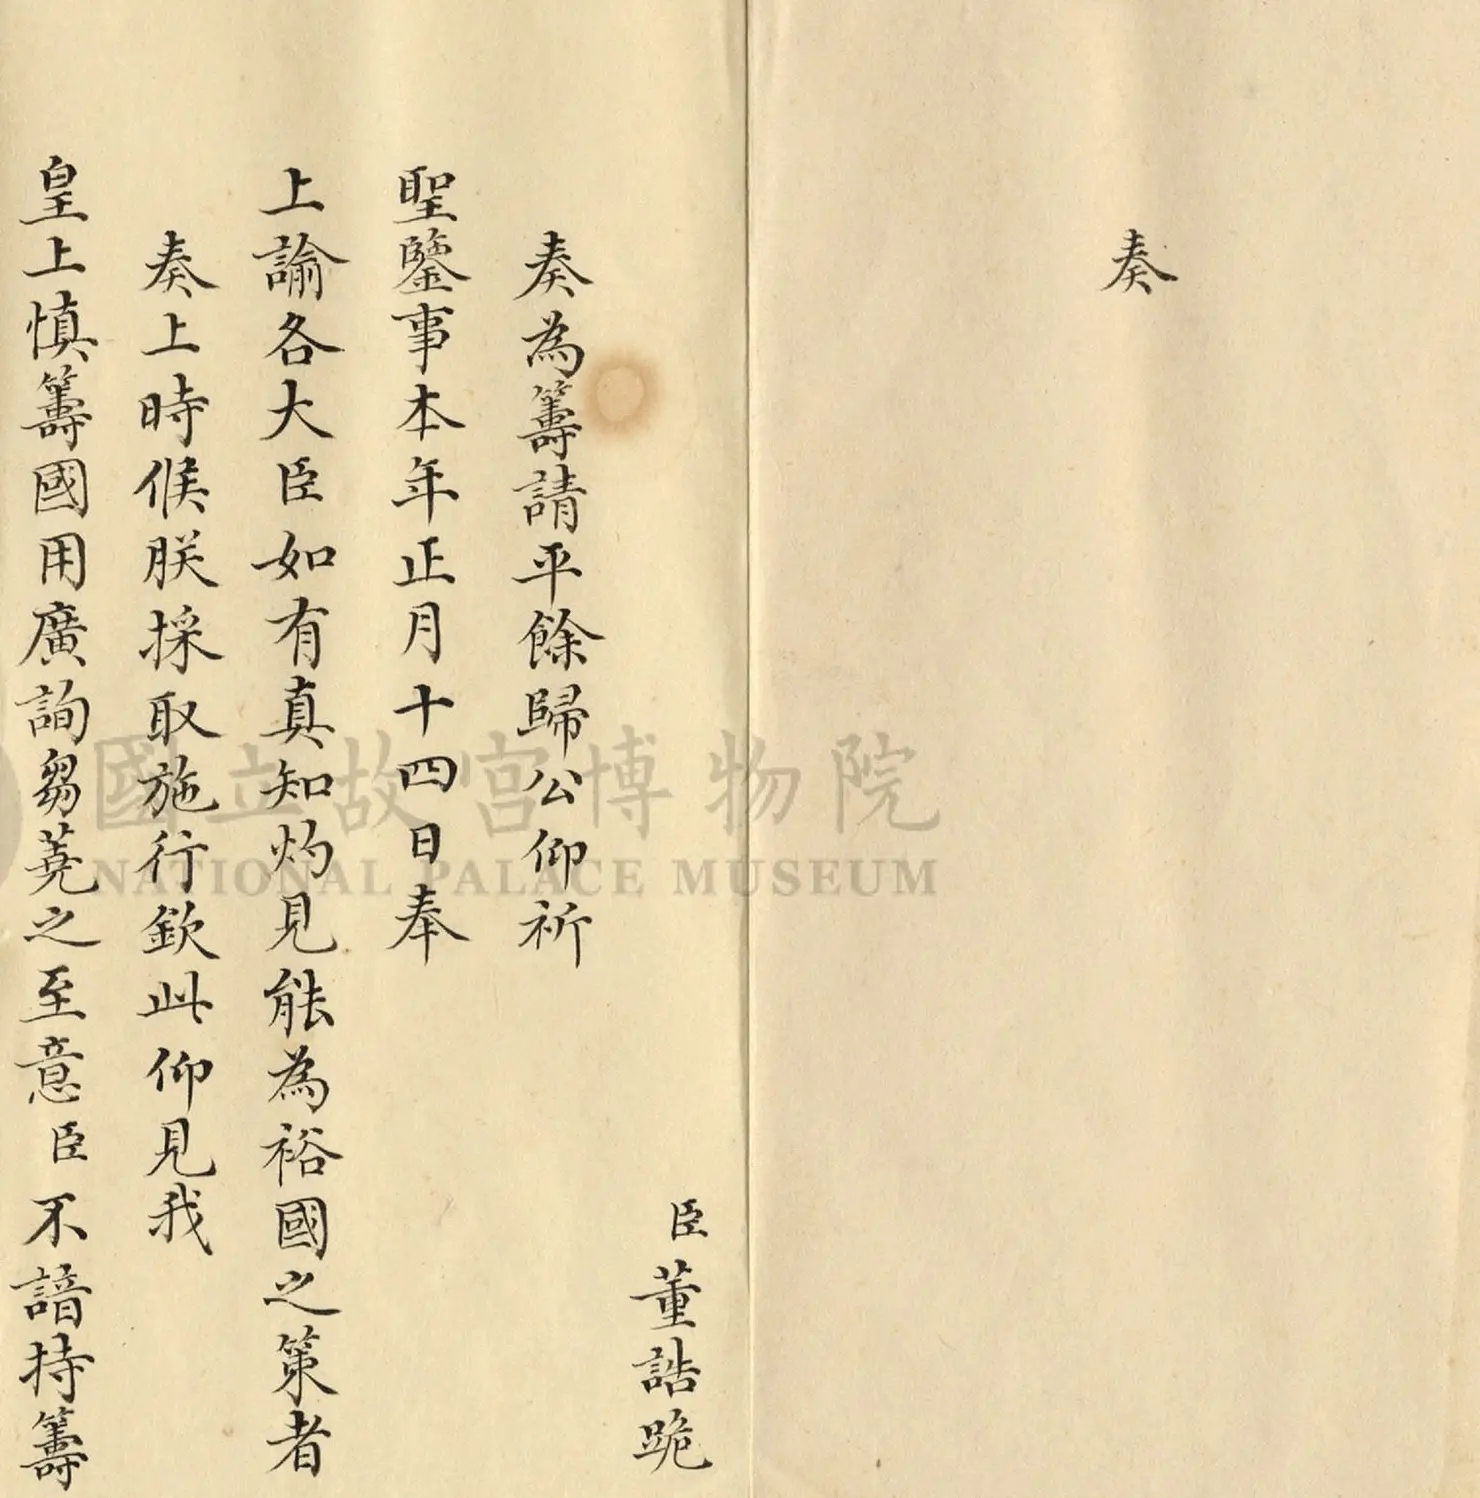 奏
臣董誥跪
奏為籌請平餘歸公仰祈
聖鑒事本年正月十四日奉
上諭各大臣如有真知灼見能為裕國之策者
奏上時候朕採取施行欽此仰見我
皇上慎籌國用廣詢芻蕘之至意臣不諳持籌
國立故宮博物院
NATIONAL PALACE MUSEUM